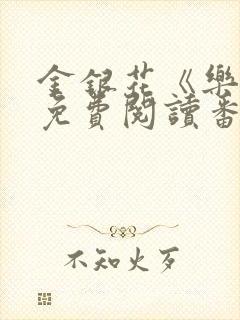 金銀花《樂
免費閱讀番
不知火歹